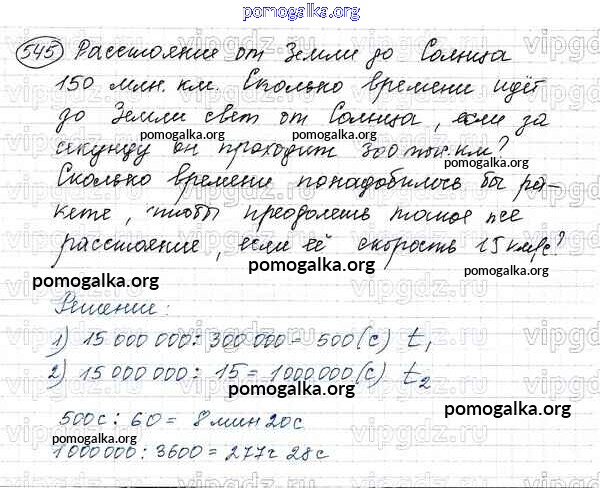 pomogalka.org
545 Расстояние от Земли до Солнца
150 млн. км. Сколько времени идёт
до Земли свет от Солнца, если за
pomogalka.org pomogalka.org
секунду он проходит 300 тыс. км?
Сколько времени понадобилось бы ра-
кете, чтобы преодолеть такое же
расстояние, если её скорость 15 км/с?
pomogalka.org
pomogalka.org
pomogalka.org
Решение:
1) 15 000 000 : 300 000 = 500 (с) t1
2) 15 000 000 : 15 = 1000 000 (с) t2
pomogalka.org
pomogalka.org
500с : 60 = 8 мин 20с
pomogalka.org
1000000 : 3600 = 277ч 28с